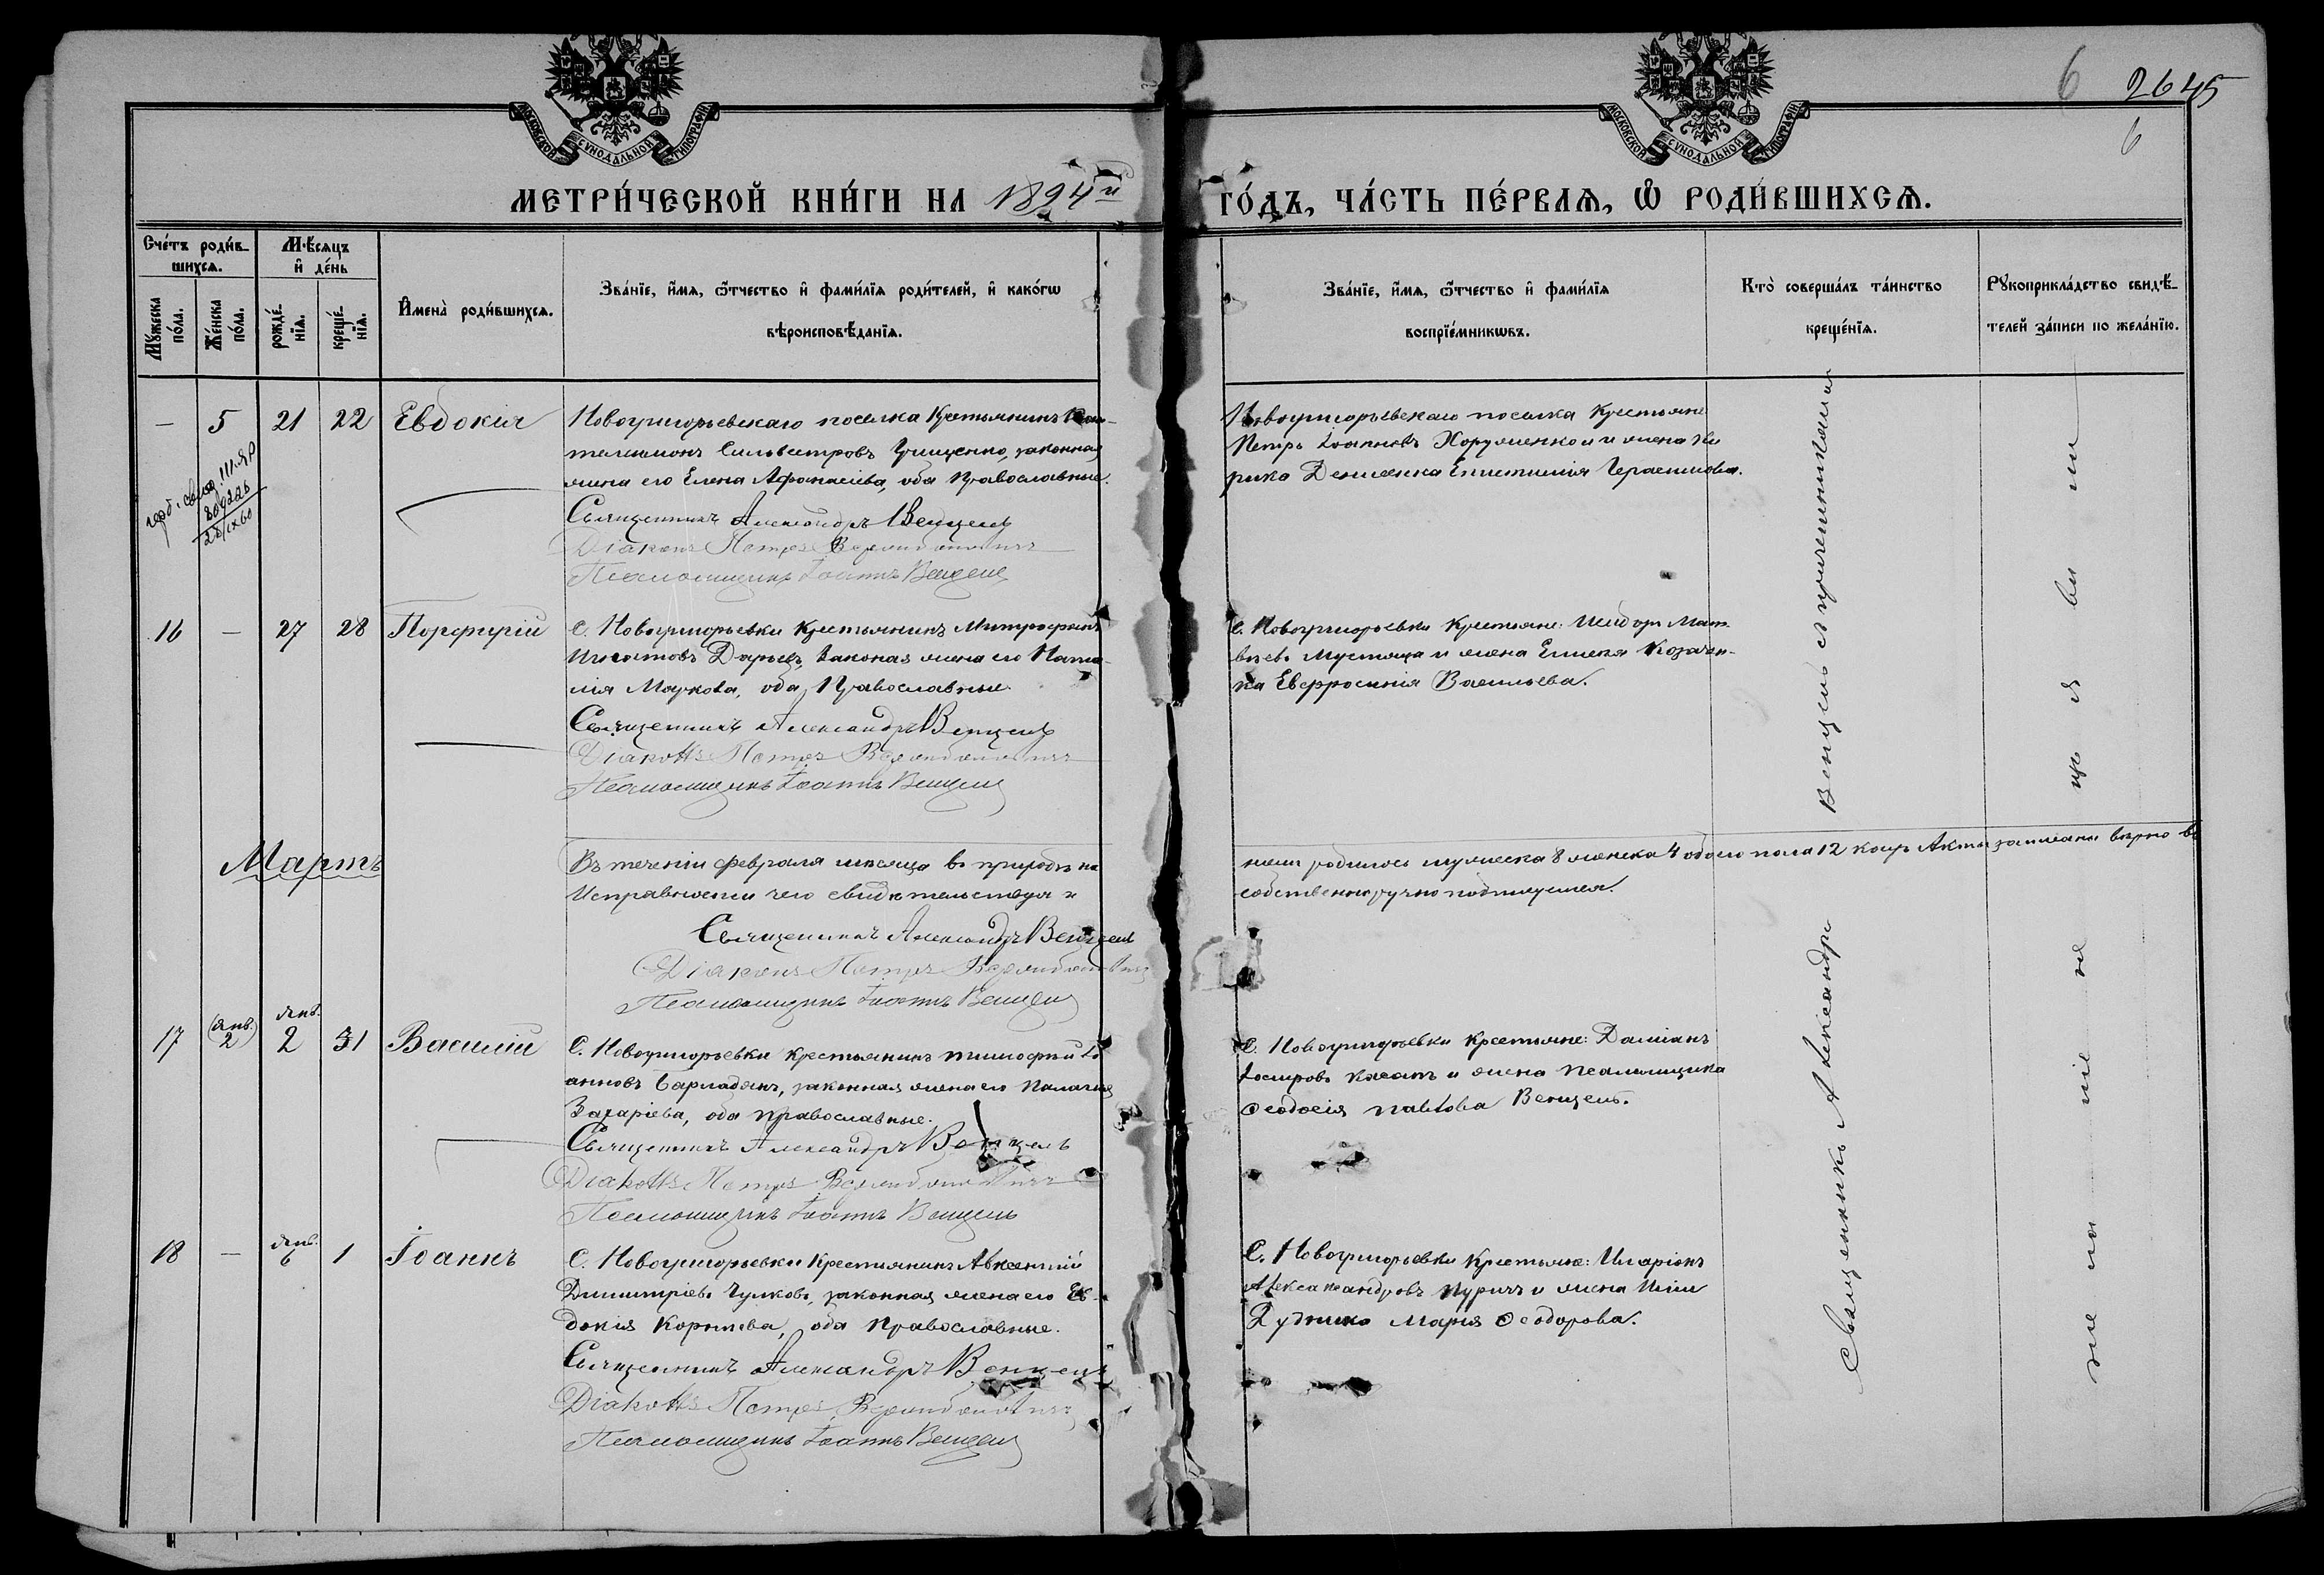 6 2645
6
МОСКОВСКОЙ СѴНОДАЛЬНОЙ ТИПОГРАФІИ
МОСКОВСКОЙ СѴНОДАЛЬНОЙ ТИПОГРАФІИ
МЕТРИ́ЧЕСКОЙ КНИ́ГИ НА 1894й ГО́ДЪ, ЧА́СТЬ ПЕ́РВАѦ, Ѽ РОДИ́ВШИХСѦ.
Сче́тъ роди́в-
шихсѧ.
Мꙋ́жеска
по́ла.
Же́нска
по́ла.
Мѣ́сяцъ
и҆ де́нь
рожде́-
нїѧ.
креще́-
нїѧ.
И҆мена̀ роди́вшихсѧ.
Зва́нїе, и҆́мѧ, ѻ҆́тчество и҆ фами́лїѧ роди́телей, и҆ како́гѡ
вѣроисповѣ́данїѧ.
Зва́нїе, и҆́мѧ, ѻ҆́тчество и҆ фами́лїѧ
воспрїе́мникѡвъ.
Кто̀ соверша́лъ та́инство
креще́нїѧ.
Рꙋкоприкла́дство свидѣ́-
телей за́писи по жела́нїю.
— 5 21 22 Евдокія
Новогригорьевскаго поселка Крестьянинъ Пан-
телимонъ Сильвестровъ Грищенко, законная
жена его Елена Афанасіева, оба Православные.
Священникъ Александръ Венцель
Діаконъ Петръ
Псаломщикъ Іоаннъ Венцель
Новогригорьевскаго поселка Крестьяне
Петръ Іоанновъ Хорушенко и жена Ки
рика Денисенка Епистимія Герасимова.
16 — 27 28 Порфирій
С. Новогригорьевки Крестьянинъ Митрофанъ
Игнатовъ Дарьевъ, законая жена его Ната-
лія Маркова, оба Православные.
Священникъ Александръ Венцель
Діаконъ Петръ
Псаломщикъ Іоаннъ Венцель
С. Новогригорьевки Крестьяне: Исидоръ Мат-
віевъ Мустяца и жена Елисея Козачен-
ка Евфросинія Васильева.
Мартъ
Въ теченіи февраля мѣсяца въ приходѣ на-
шемъ родилось мужеска 8 женска 4 обоего пола 12 коихъ Акты записаны вѣрно въ
Исправности чего свидѣтельствуя и
собственноручно подписуемся.
Священникъ Александръ Венцель
Діаконъ Петръ
Псаломщикъ Іоаннъ Венцель
17 (янв. 2) янв. 2 31 Василій
С. Новогригорьевки крестьянинъ тимофей Іо
анновъ Барладянъ, законная жена его Палагія
Захаріева, оба православные.
Священникъ Александръ Венцель
Діаконъ Петръ
Псаломщикъ Іоаннъ Венцель
С. Новогригорьевки крестьяне: Даміанъ
Іосифовъ Касапъ и жена псаломщика
Ѳеодосія павлова Венцель.
18 — янв. 6 1 Іоаннъ
С. Новогригорьевки Крестьянинъ Авксентій
Димитріевъ Чулковъ, законная жена его Ев-
докія Корнѣева, оба Православные.
Священникъ Александръ Венцель
Діаконъ Петръ
Псаломщикъ Іоаннъ Венцель
С. Новогригорьевки Крестьяне: Иларіонъ
Александровъ Куричъ и жена Иліи
Дудника Марія Ѳеодорова.
Священникъ Александръ Венцель съ причетниками